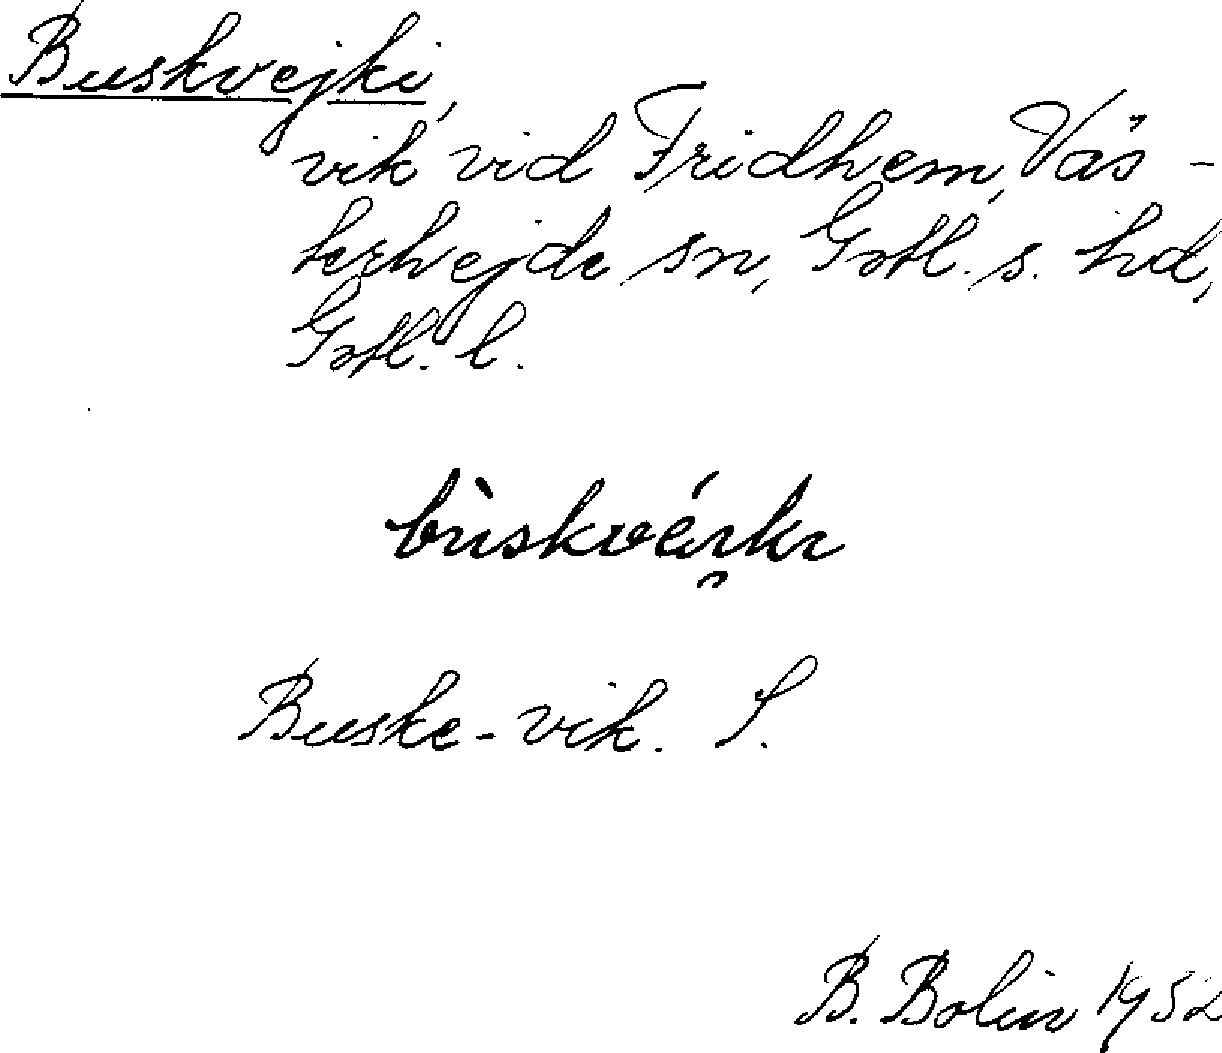 Buskvejki,
vik vid Fridhem, Väs-
terhejde sn, Gotl. s. hd,
Gotl. l.
Buske-vik. S.
B. Bolin 1952